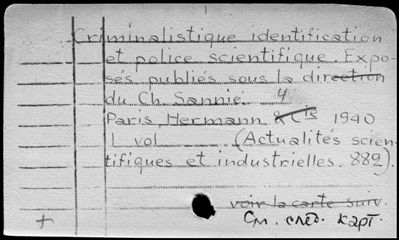 Criminalistique identification
et police scientifique. Expo-
sés publiés sous la direction
du Ch. Sannié. 4
Paris, Hermann & Cie 1940
1 vol (Actualités scien-
tifiques et industrielles. 889).
voir la carte suiv.
+ См. след. карт.